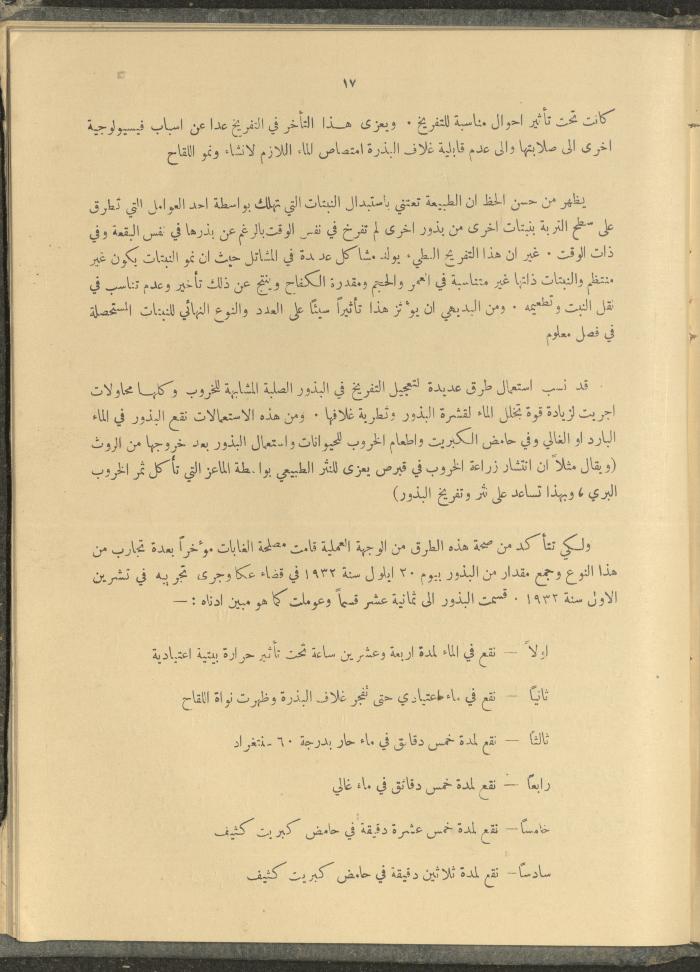 ١٧
كانت تحت تأثير احوال مناسبة للتفريخ ٠ ويعزى هـذا التأخر في التفريخ عدا عن اسباب فيسيولوجية
اخرى الى صلابتها والى عدم قابلية غلاف البذرة امتصاص الماء اللازم لانشاء ونمو اللقاح
يظهر من حسن الحظ ان الطبيعة تعتني باستبدال النبتات التي تهلك بواسطة احد العوامل التي تطرق
على سطح التربة بنبتات اخرى من بذور اخرى لم تفرخ في نفس الوقت بالرغم عن بذرها في نفس البقعة وفي
ذات الوقت ٠ غير ان هذا التفريخ البطيء يولد مشاكل عديدة في المشاتل حيث ان نمو النبتات يكون غير
منتظم والنبتات ذاتها غير متناسبة في العمر والحجم ومقدرة الكفاح وينتج عن ذلك تأخير وعدم تناسب في
نقل النبت وتطعيمه ٠ ومن البديهي ان يؤثر هذا تأثيراً سيئاً على العدد والنوع النهائي للنبتات المستحصلة
في فصل معلوم
قد نسب استعمال طرق عديدة لتعجيل التفريخ في البذور الصلبة المشابهة للخروب وكلهـا محاولات
اجريت لزيادة قوة تخلل الماء لقشرة البذور وتطرية غلافها ٠ ومن هذه الاستعمالات نقع البذور في الماء
البارد او الغالي وفي حامض الكبريت واطعام الخروب للحيوانات واستعمال البذور بعد خروجها من الروث
(ويقال مثلاً ان انتشار زراعة الخروب في قبرص يعزى للنثر الطبيعي بواسطة الماعز التي تأكل ثمر الخروب
البري ، وبهذا تساعد على نثر وتفريخ البذور)
ولكي تتأكد من صحة هذه الطرق من الوجهة العملية قامت مصلحة الغابات مؤخراً بعدة تجارب من
هذا النوع وجمع مقدار من البذور بيوم ٢٠ ايلول سنة ١٩٣٢ في قضاء عكا وجرى تجربه في تشرين
الاول سنة ١٩٣٢ ٠ قسمت البذور الى ثمانية عشر قسماً وعوملت كما هو مبين ادناه : —
اولاً — نقع في الماء لمدة اربعة وعشرين ساعة تحت تأثير حرارة بيتية اعتيادية
ثانياً — نقع في ماء اعتيادي حتى تفجر غلاف البذرة وظهرت نواة اللقاح
ثالثاً — نقع لمدة خمس دقائق في ماء حار بدرجة ٦٠ سنتغراد
رابعاً — نقع لمدة خمس دقائق في ماء غالي
خامساً — نقع لمدة خمس عشرة دقيقة في حامض كبريت كثيف
سادساً — نقع لمدة ثلاثين دقيقة في حامض كبريت كثيف